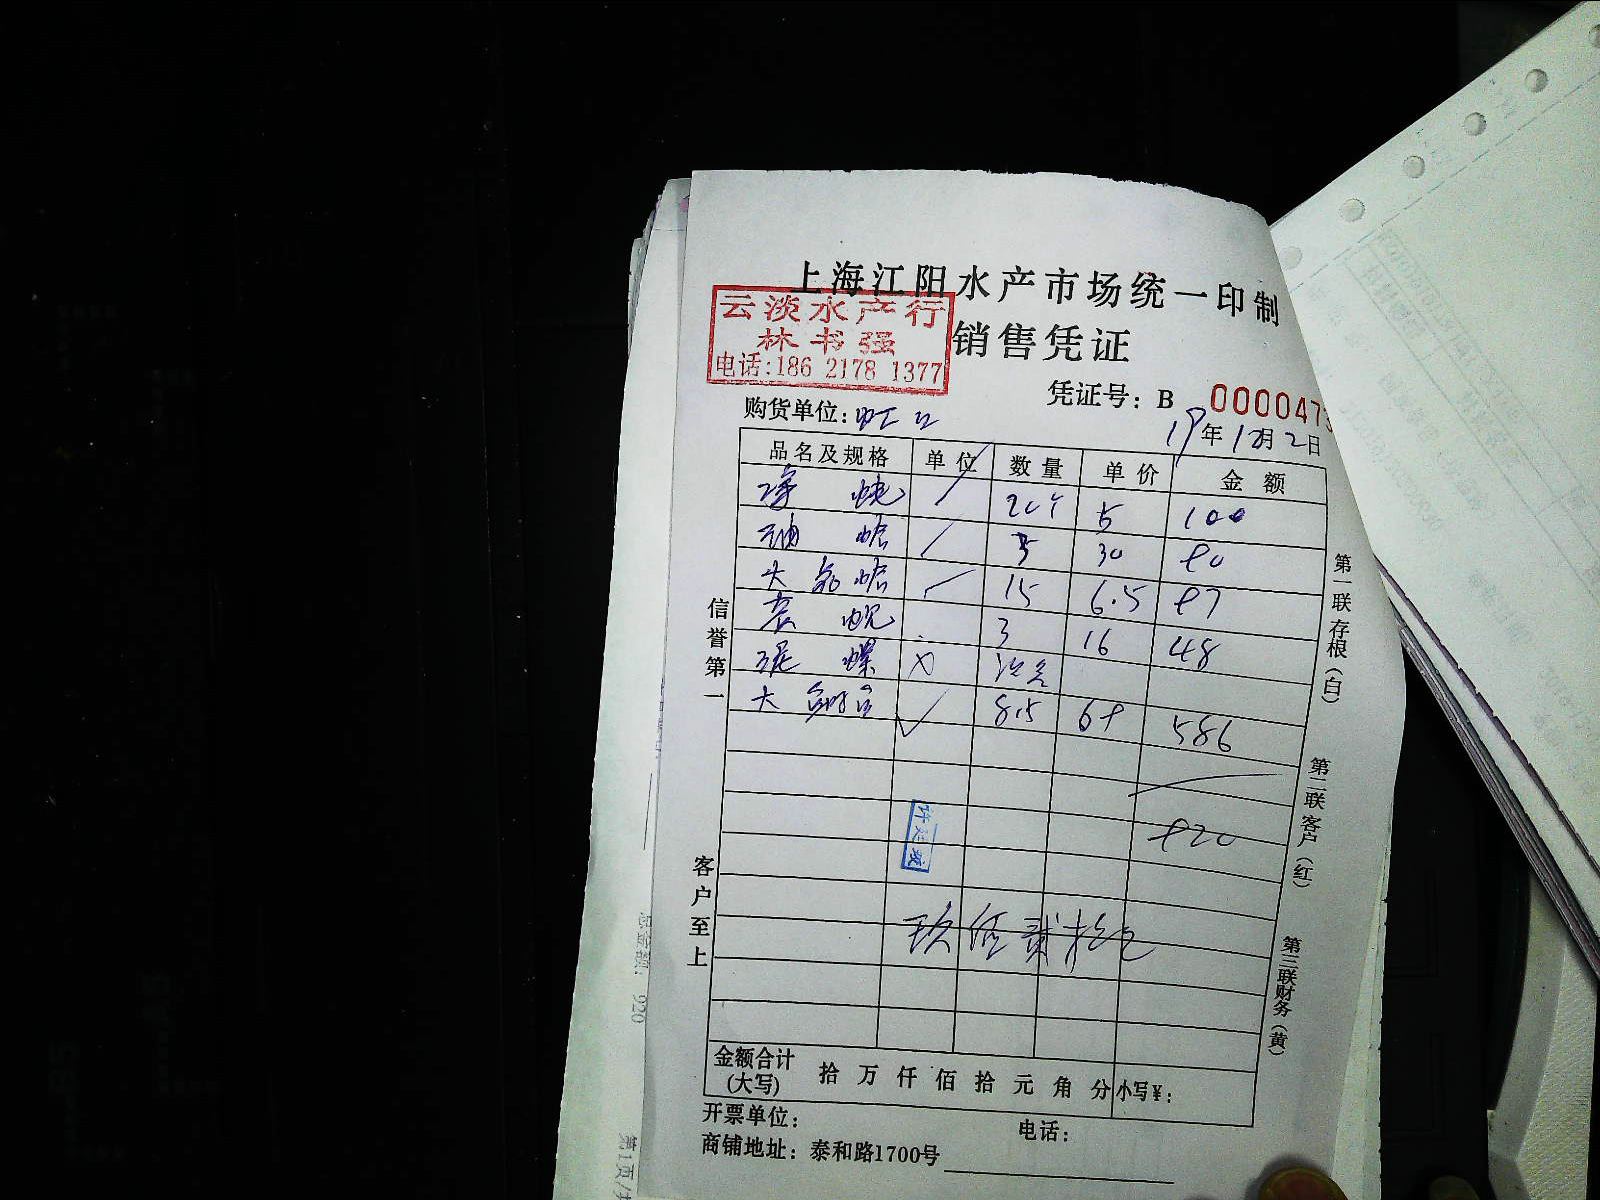 上海江阳水产市场统一印制
云淡水产行
林书强
电话:186 2178 1377
销售凭证
凭证号：B 000047
购货单位：虹口
19年12月2日
品名及规格 单位 数量 单价 金额
5 100
蛤 30 90
大 蛤 15 6.5 97
蚬 3 16 48
泥 螺 X
大 8.5 69 586
920
玖佰贰拾元
信誉第一
客户至上
第一联存根（白）
第二联客户（红）
第三联财务（黄）
金额合计(大写) 拾 万 仟 佰 拾 元 角 分 小写¥：
开票单位： 电话：
商铺地址：泰和路1700号
总金额：920
第1页/共